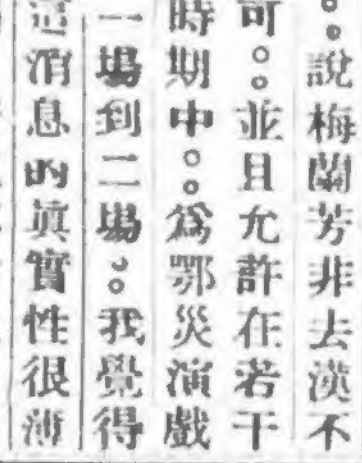 。。說梅蘭芳非去漢不
可。。並且允許在若干
時期中。。爲鄂災演戲
一場到二場。。我覺得
這消息的眞實性很薄